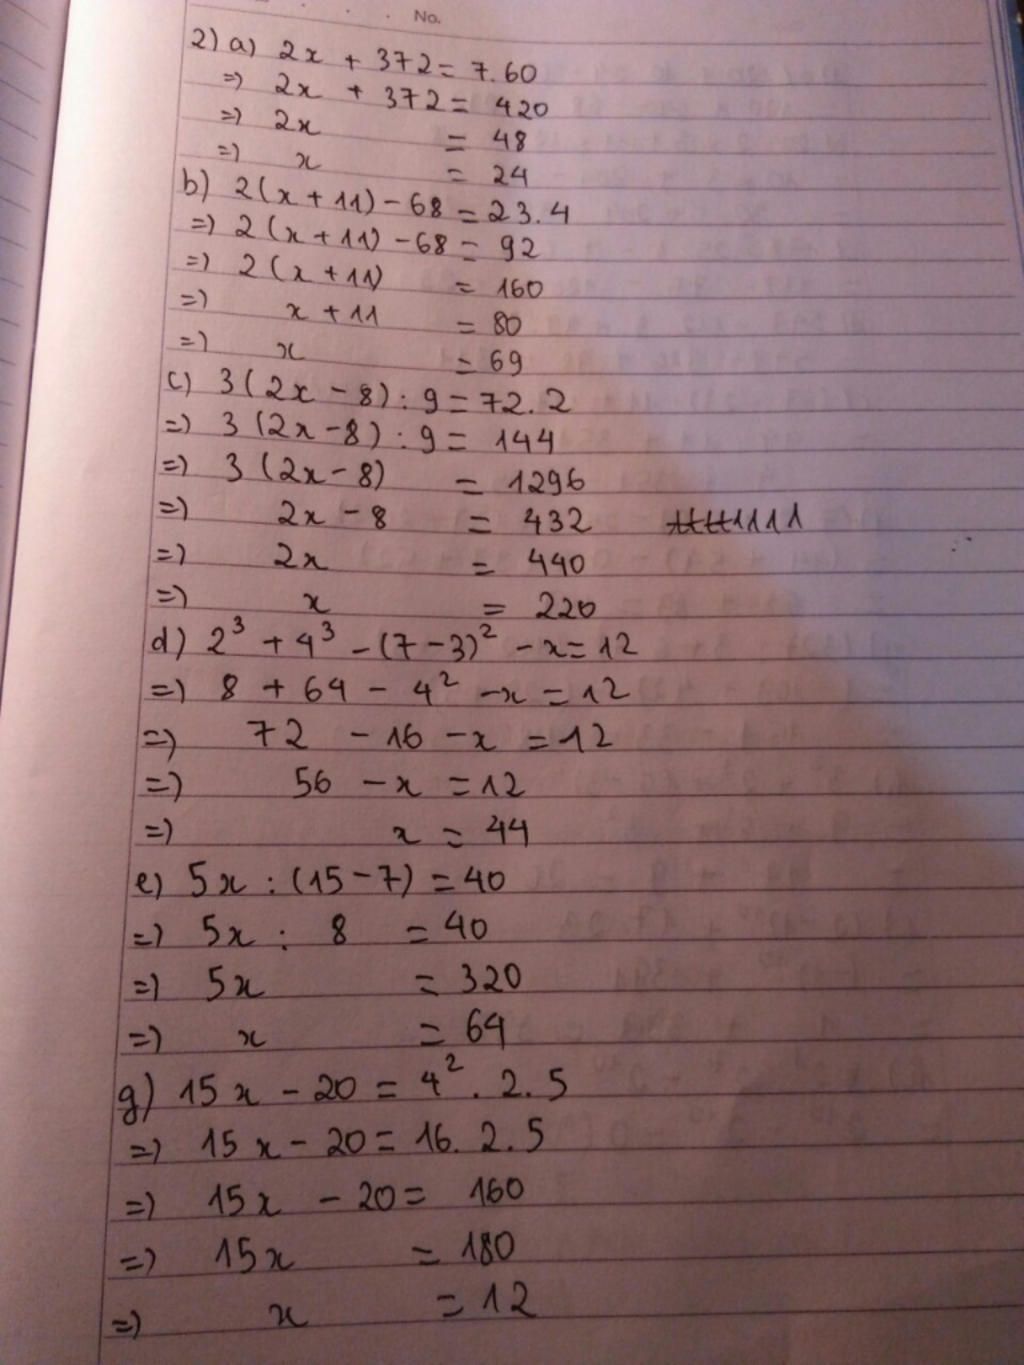 No.
2) a) 2x + 372 = 7.60
=) 2x + 372 = 420
=) 2x = 48
=) x = 24
b) 2(x + 11) - 68 = 23.4
=) 2(x + 11) - 68 = 92
=) 2(x + 11) = 160
=) x + 11 = 80
=) x = 69
c) 3(2x - 8) : 9 = 72.2
=) 3(2x - 8) : 9 = 144
=) 3(2x - 8) = 1296
=) 2x - 8 = 432
=) 2x = 440
=) x = 220
d) 2³ + 4³ - (7 - 3)² - x = 12
=) 8 + 64 - 4² - x = 12
=) 72 - 16 - x = 12
=) 56 - x = 12
=) x = 44
e) 5x : (15 - 7) = 40
=) 5x : 8 = 40
=) 5x = 320
=) x = 64
g) 15x - 20 = 4² . 2 . 5
=) 15x - 20 = 16 . 2 . 5
=) 15x - 20 = 160
=) 15x = 180
=) x = 12